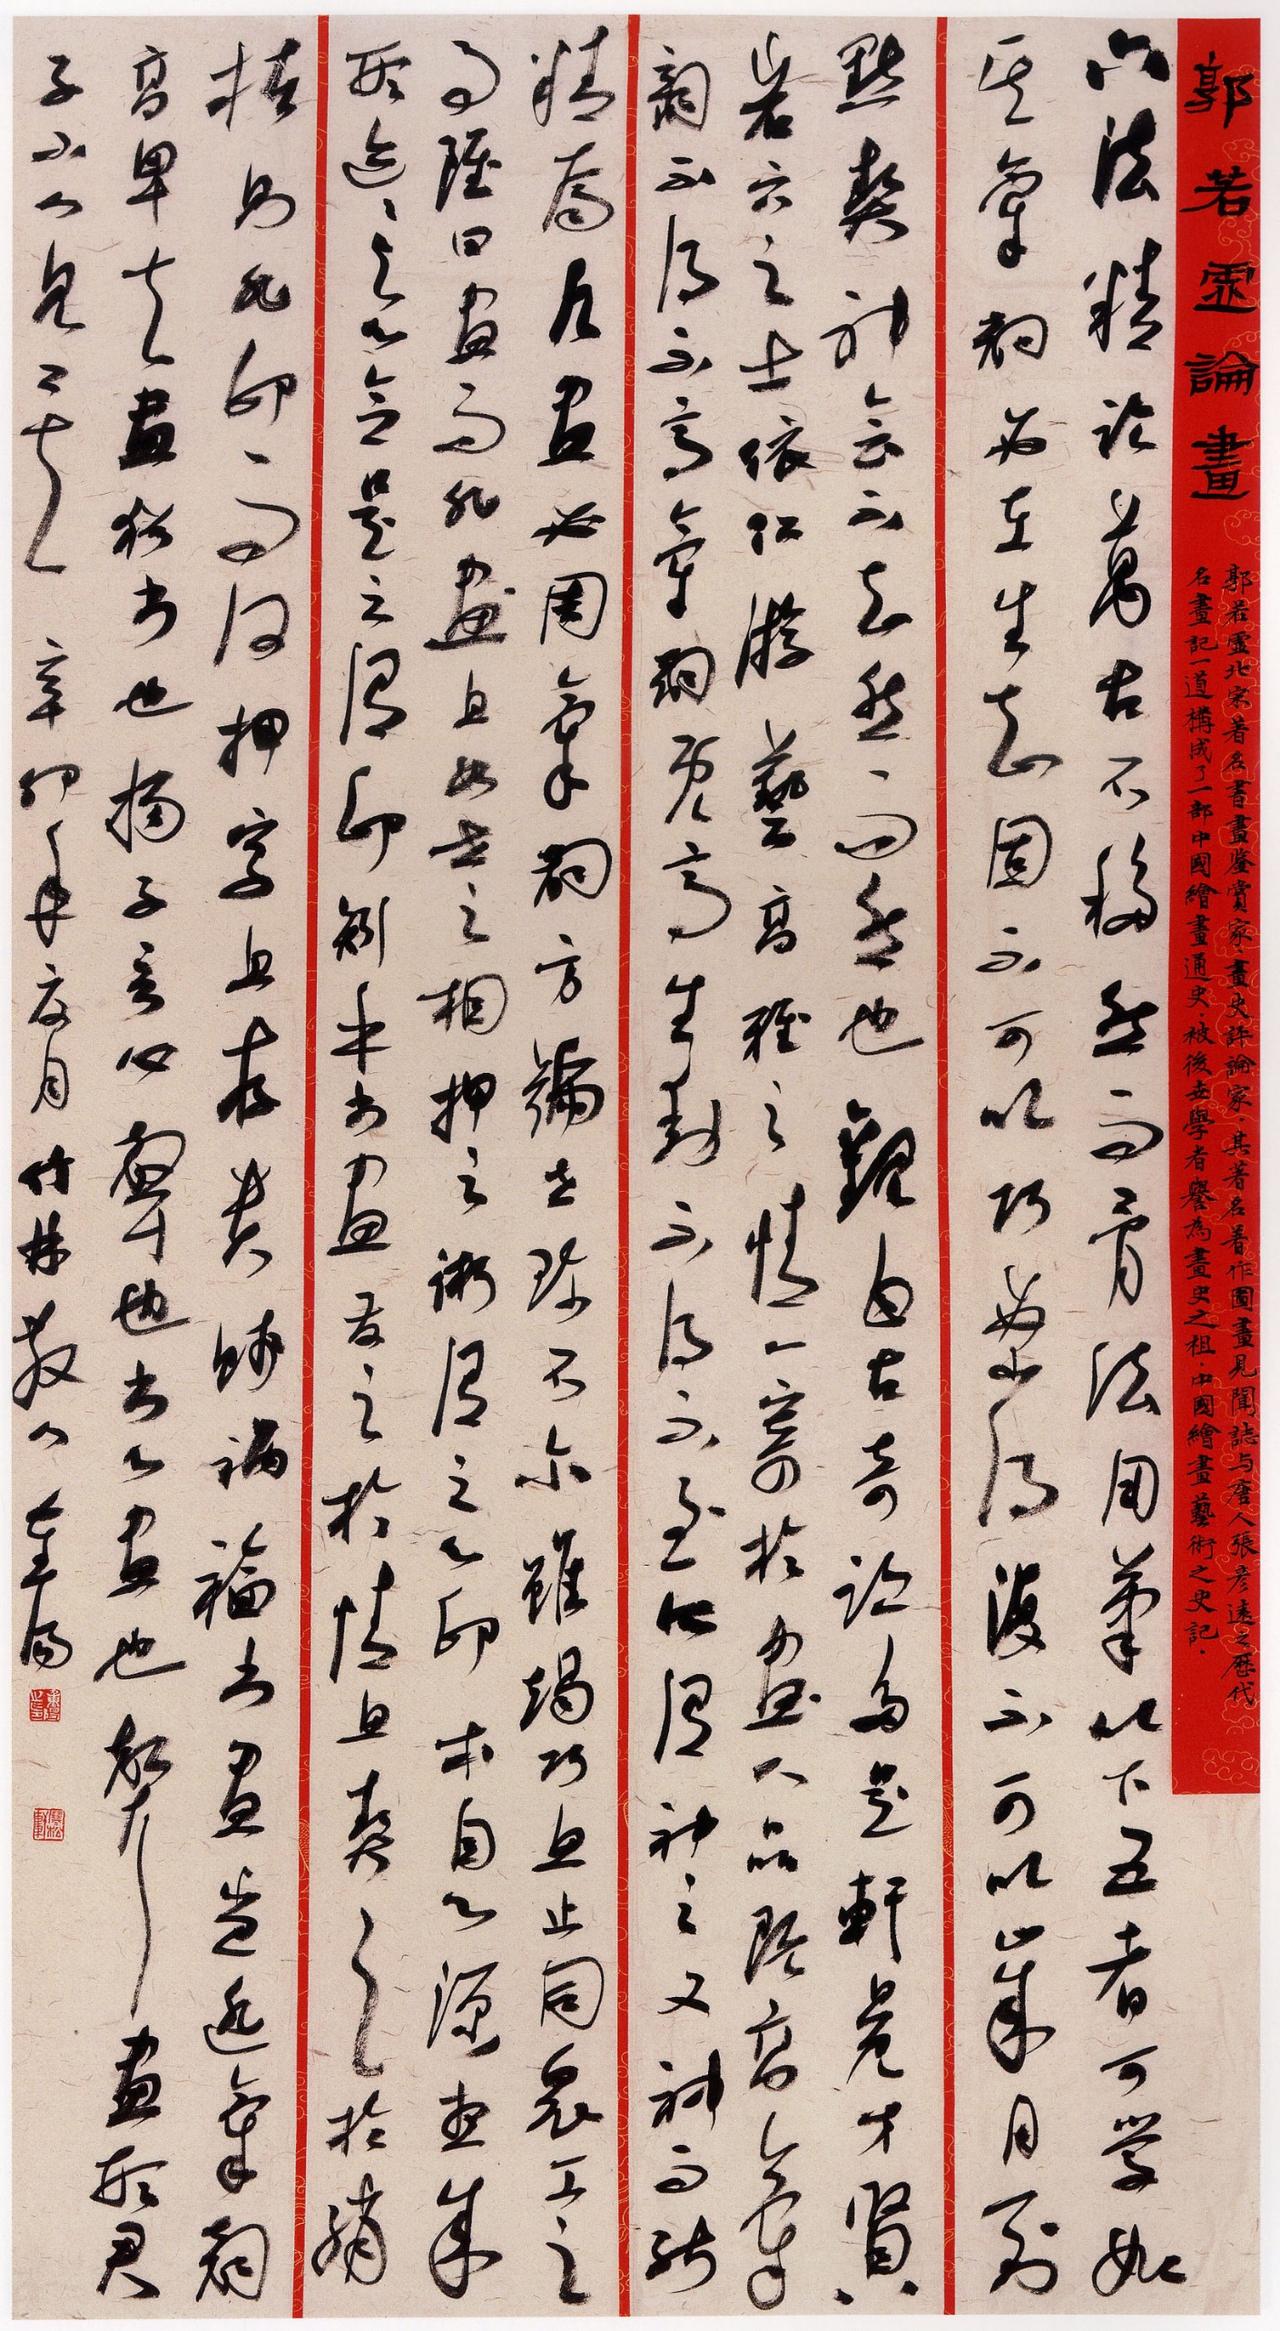 郭若虛論畫
郭若虛北宋著名書畫鑒賞家、畫史評論家、其著名著作圖畫見聞誌与唐人張彥遠之歷代
名畫記一道構成了一部中國繪畫通史、被後世學者譽為畫史之祖、中國繪畫藝術之史記、
六法精論萬古不移然而骨法用筆以下五者可學如
其氣韻必在生知固不可以巧密得復不可以歲月到
默契神會不知然而然也觀自古奇論多是軒冕才賢
岩穴之士依仁游藝高雅之情一寄於畫人品既高氣
韻不得不高氣韻既高生動不得不至所謂神之又神而能
精焉凡畫必周氣韻方號世珍不爾雖竭巧思止同衆工之
事雖曰畫而非畫且如世之相押之術謂之心印本自心源想成
形迹迹與心合是之謂印矧乎書畫發之於情思契之於綃
楮則非印而何押字且存貴賤禍福書畫豈逃氣韻
高卑夫畫猶書也揚子言心聲也書心畫也聲畫形君
子小人見矣 辛卯年夏月 竹林散人